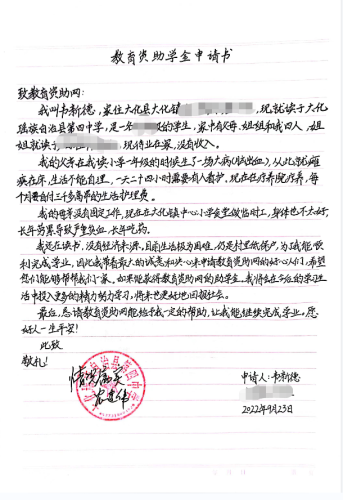 教育资助学金申请书
致教育资助网：
我叫韦新德，家住大化县大化镇 现就读于大化
瑶族自治县第四中学，是一名 的学生，家中有父母、姐姐和我四人，姐
姐就读于 现待业在家，没有收入。
我的父亲在我读小学一年级的时候生了一场大病（脑出血），从此就瘫
痪在床，生活不能自理，一天二十四小时需要有人看护，现在在疗养院疗养，每
个月要自付三千多高昂的生活护理费。
我的母亲没有固定工作，现在在大化镇中心小学食堂做临时工，身体也不太好，
长年劳累导致贫血，长年吃药。
我还在读书，没有经济来源，目前生活极为困难，仍是村里低保户，为了我能顺
利完成学业，因此我带着最大的诚意和决心来申请教育资助网的好心人们，希望
您们能够帮帮我们小家。如果能获得教育资助网的助学金，我将会在今后的学习生
活中投入更多的精力努力学习，将来也更好地回报社会。
最后，恳请教育资助网能给予我一定的帮助，让我能继续完成学业。愿
好人一生平安！
此致
敬礼！
情况属实
自治县第四中学
申请人：韦新德
2022年9月23日